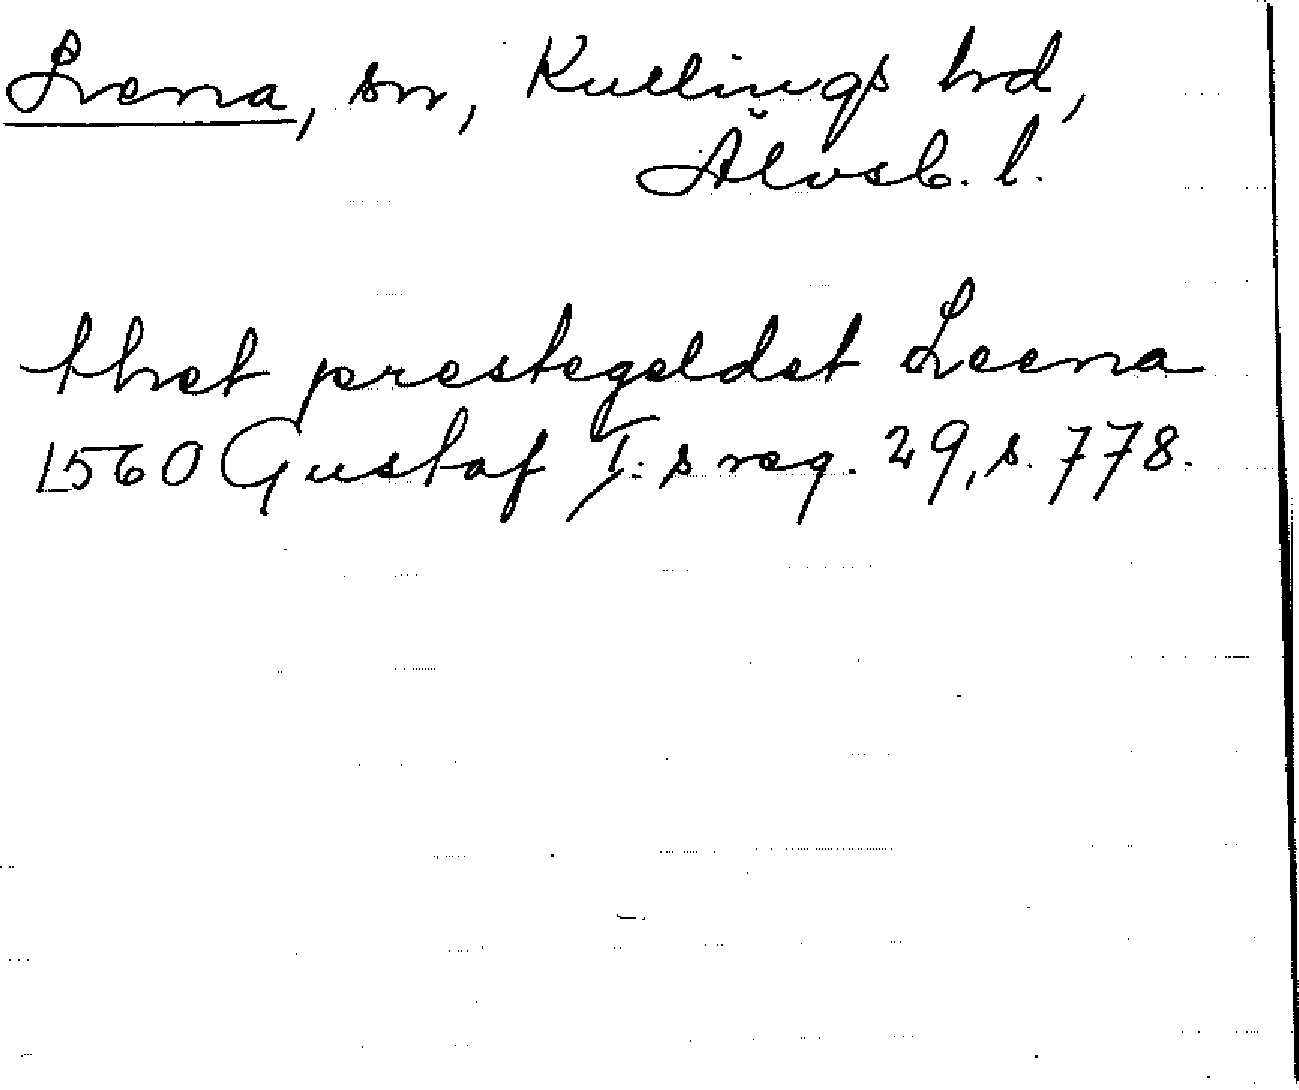 Lrena, sn, Kullings hd,
Älvsb. l.
thet prestegeldet Leena
1560 Gustaf I:s reg. 29, s. 778.